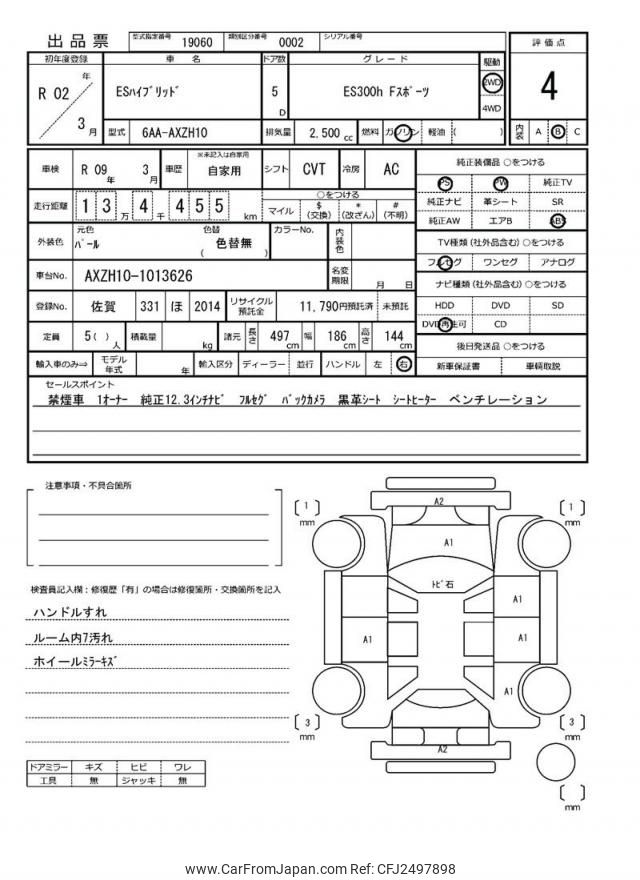 出品票 型式指定番号 19060 類別区分番号 0002 シリアル番号
評価点
4
内装 A B C
初年度登録 車名 ドア数 グレード 駆動
R 02 年 3 月 ESﾊｲﾌﾞﾘｯﾄﾞ 5 D ES300h Fｽﾎﾟｰﾂ 2WD 4WD
型式 6AA-AXZH10 排気量 2,500 cc 燃料 ガソリン 軽油 ( )
車検 R 09 年 3 月 車歴 ※未記入は自家用 自家用 シフト CVT 冷房 AC
走行距離 1 3 万 4 千 4 5 5 km ○をつける
マイル $ (交換) * (改ざん) # (不明)
外装色 元色 ﾊﾟｰﾙ 色替 ( 色替無 ) カラーNo. 内装色
車台No. AXZH10-1013626 名変期限 月 日
登録No. 佐賀 331 ほ 2014 リサイクル預託金 11,790円預託済 未預託
定員 5( ) 人 積載量 kg 諸元 長さ 497 cm 幅 186 cm 高さ 144 cm
輸入車のみ⇒ モデル年式 年 輸入区分 ディーラー 並行 ハンドル 左 右
純正装備品 ○をつける
PS PW 純正TV
純正ナビ 革シート SR
純正AW エアB ABS
TV種類(社外品含む)○をつける
フルセグ ワンセグ アナログ
ナビ種類(社外品含む)○をつける
HDD DVD SD
DVD再生可 CD
後日発送品 ○をつける
新車保証書 車輌取説
セールスポイント
禁煙車 1ｵｰﾅｰ 純正12.3ｲﾝﾁﾅﾋﾞ ﾌﾙｾｸﾞ ﾊﾞｯｸｶﾒﾗ 黒革ｼｰﾄ ｼｰﾄﾋｰﾀｰ ベンチレーション
注意事項・不具合箇所
検査員記入欄：修復歴「有」の場合は修復箇所・交換箇所を記入
ハンドルすれ
ルーム内7汚れ
ホイールﾐﾗｰｷｽﾞ
ドアミラー キズ ヒビ ワレ
工具 無 ジャッキ 無
A2
[ 1 ] mm [ 1 ] mm
A1
ﾄﾋﾞ石
A1
A1 A1
A1
[ 3 ] mm [ 3 ] mm
A2
[ ] mm
www.CarFromJapan.com Ref: CFJ2497898